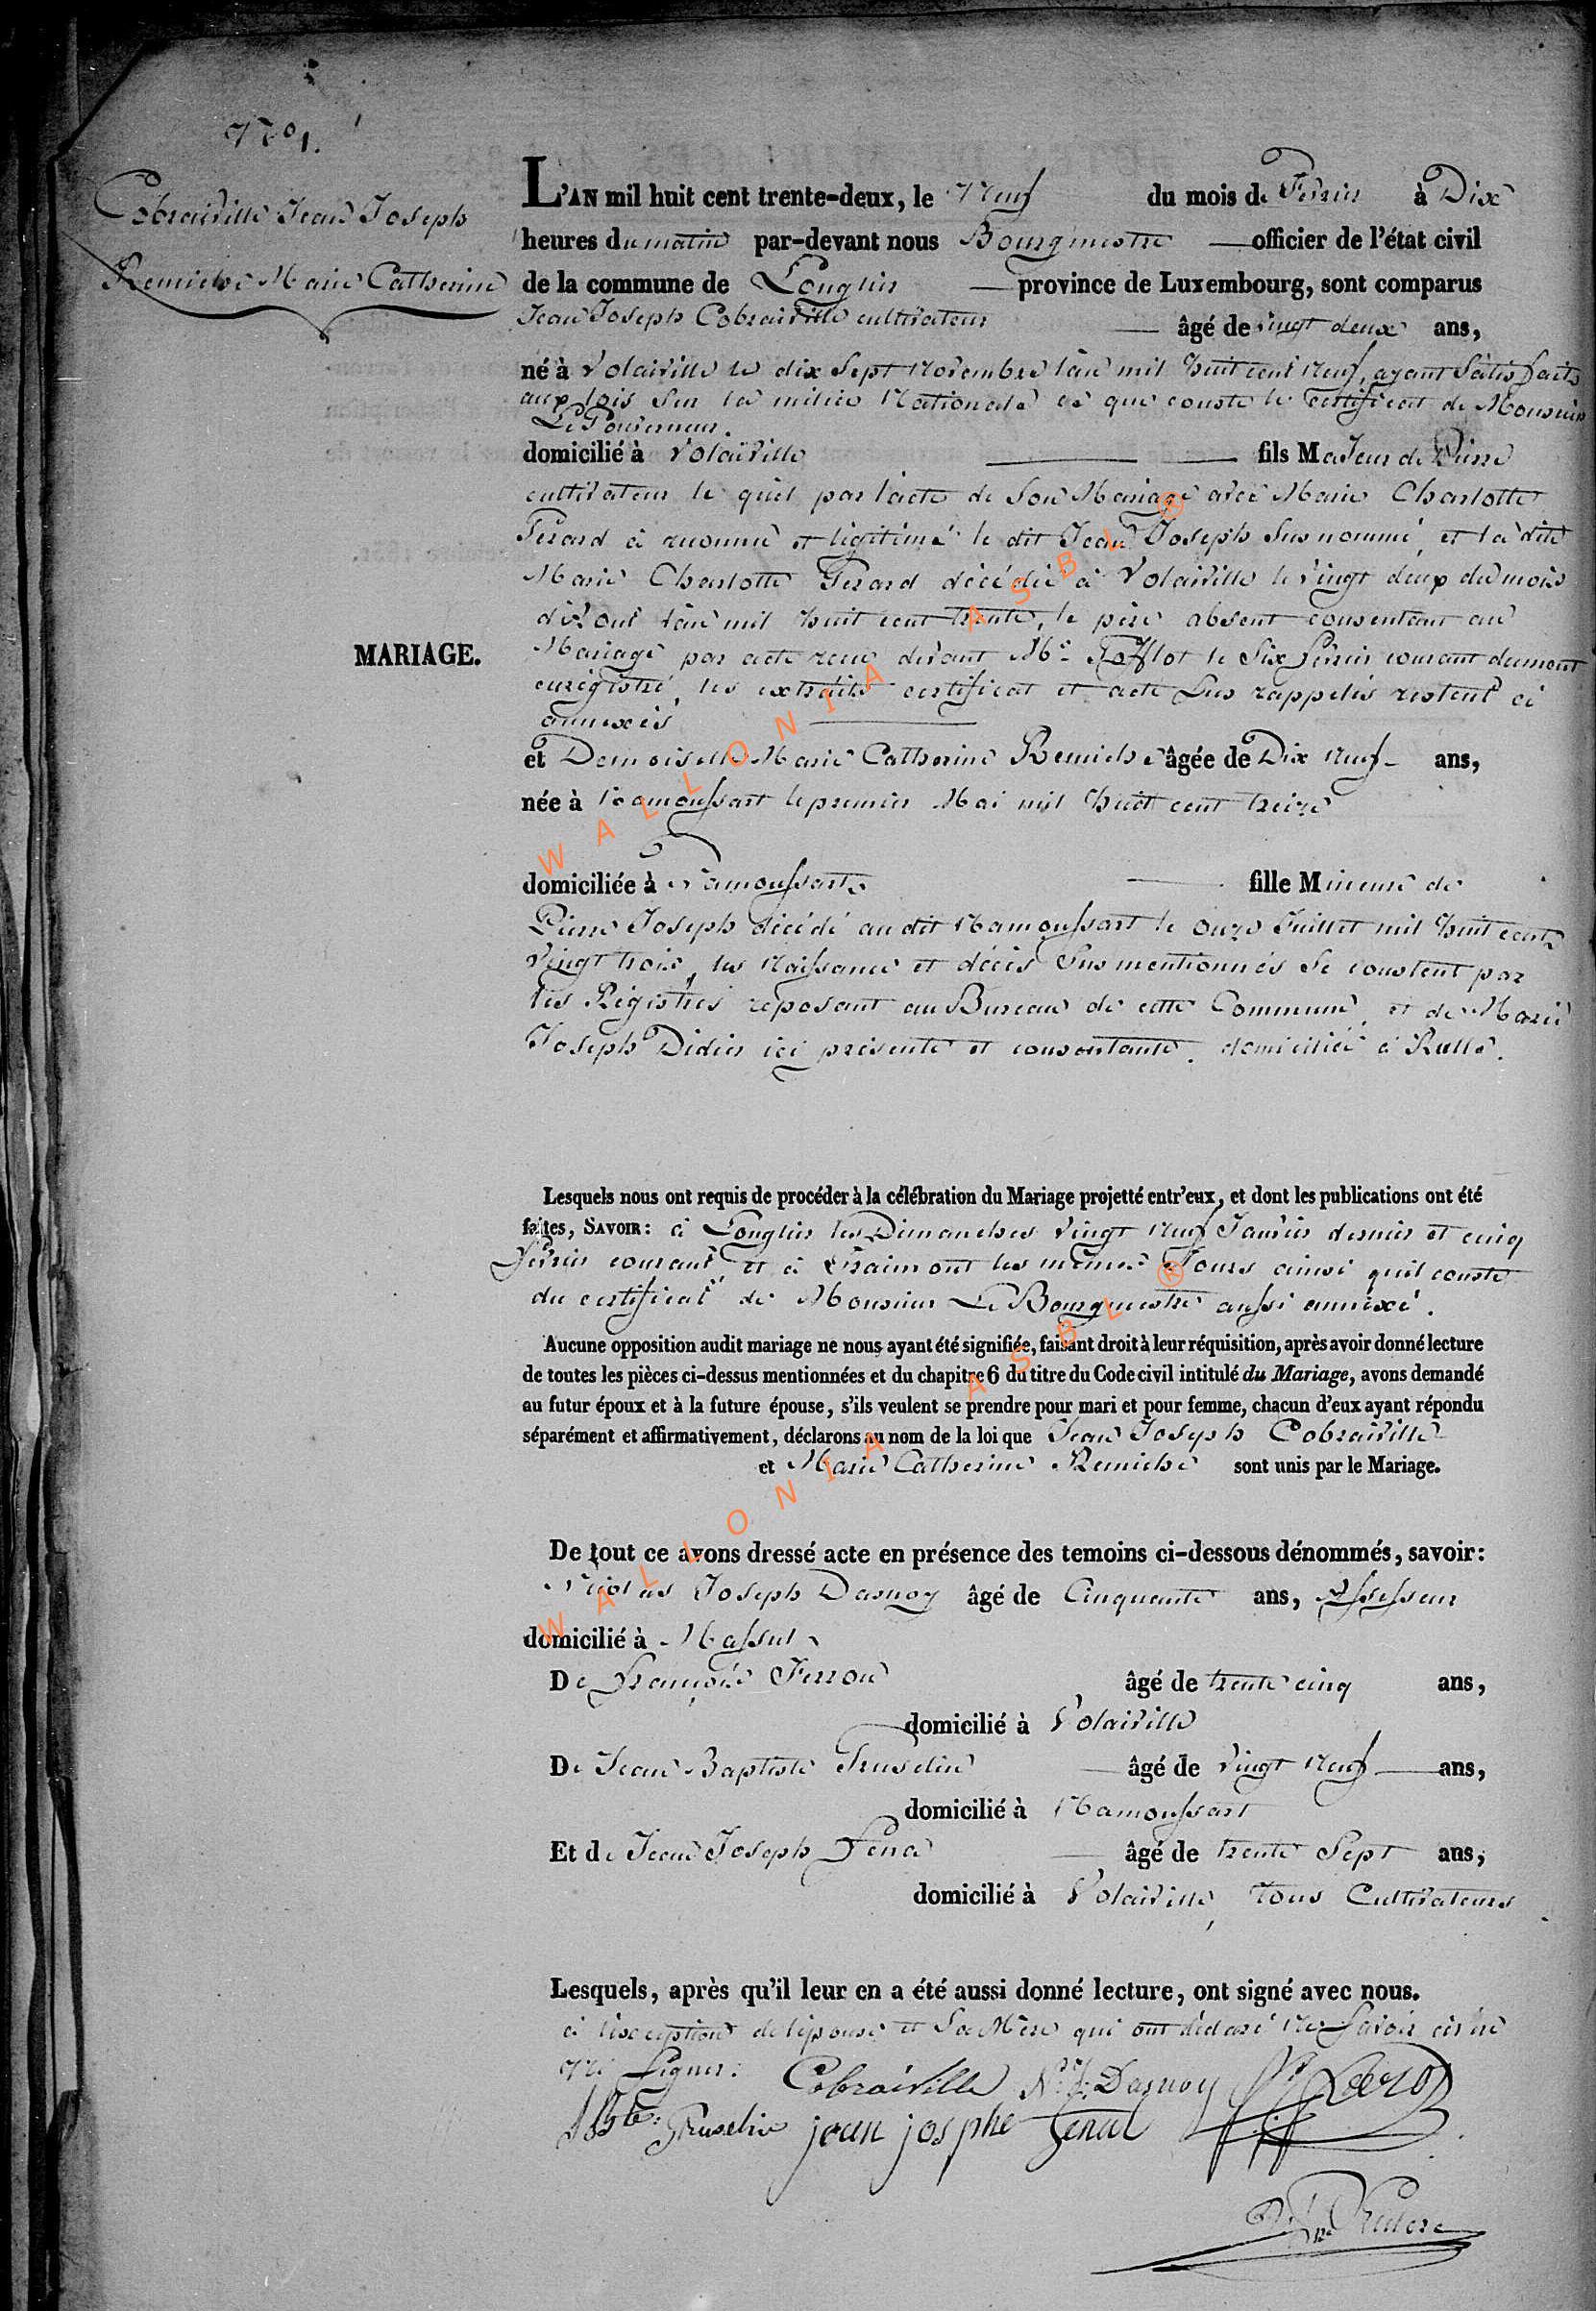 N° 1.
Cobraiville Jean Joseph
Remiche Marie Catherine
MARIAGE.
L'AN mil huit cent trente-deux, le Neuf du mois de Fevrier à Dix
heures du matin par-devant nous Bourgmestre officier de l'état civil
de la commune de Longlier province de Luxembourg, sont comparus
Jean Joseph Cobraiville cultivateur âgé de vingt deux ans,
né à Volaiville le dix Sept Novembre l'an mil huit cent Neuf, ayant Satisfaits
aux lois Sur la milice Nationale ce que conste le certificat de Monsieur
Le Gouverneur.
domicilié à Volaiville fils Majeur de Pierre
cultivateur le quel par l'acte de Son Mariage avec Marie Charlotte
Gerard à reconnu et légitimé le dit Jean Joseph Susnommé, et la dite
Marie Charlotte Gerard décédée à Volaiville le vingt deux du mois
d'Août l'an mil huit cent trente, le père absent consentant au
Mariage par acte reçu devant Me le Six fevrier courant dument
enrégistré, les extraits certificat et acte Sus rappelés restent ci
annexés
et Demoiselle Marie Catherine Remiche âgée de Dix Neuf ans,
née à Namoussart le premier Mai mil huit cent treize
domiciliée à Namoussart fille Mineure de
Pierre Joseph décédé au dit Namoussart le onze Juillet mil huit cent
Vingt trois, les Naissance et décès Sus mentionnés Se constent par
les Régistres reposant au Bureau de cette Commune, et de Marie
Joseph Didier ici présente et consentante, domiciliée à Rulle.
Lesquels nous ont requis de procéder à la célébration du Mariage projetté entr'eux, et dont les publications ont été
faites, SAVOIR: à Longlier les Dimanches vingt Neuf Janvier dernier et cinq
fevrier courant et à les mêmes Jours ainsi qu'il conste
du certificat de Monsieur Le Bourgmestre aussi annexé.
Aucune opposition audit mariage ne nous ayant été signifiée, faisant droit à leur réquisition, après avoir donné lecture
de toutes les pièces ci-dessus mentionnées et du chapitre 6 du titre du Code civil intitulé du Mariage, avons demandé
au futur époux et à la future épouse, s'ils veulent se prendre pour mari et pour femme, chacun d'eux ayant répondu
séparément et affirmativement, déclarons au nom de la loi que Jean Joseph Cobraiville
et Marie Catherine Remiche sont unis par le Mariage.
De tout ce avons dressé acte en présence des temoins ci-dessous dénommés, savoir:
Nicolas Joseph Dasnoy âgé de Cinquante ans, Assesseur
domicilié à Massul
De François âgé de trente cinq ans,
domicilié à Volaiville
De Jean Baptiste Gruselin âgé de Vingt Neuf ans,
domicilié à Namoussart
Et de Jean Joseph Genet âgé de trente Sept ans,
domicilié à Volaiville, tous Cultivateurs
Lesquels, après qu'il leur en a été aussi donné lecture, ont signé avec nous.
à l'exception de l'épouse et Sa Mère qui ont déclaré Ne Savoir écrire
Ni Signer:
Cobraiville N. J. Dasnoy
JBte: Gruselin jean josphe
WALLONIA ASBL ®
WALLONIA ASBL ®